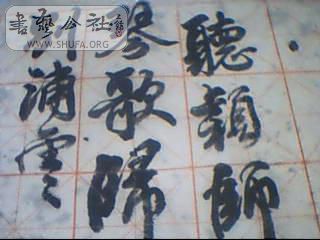 聽穎師
琴歌歸
別浦雲
書藝公社
WWW.SHUFA.ORG